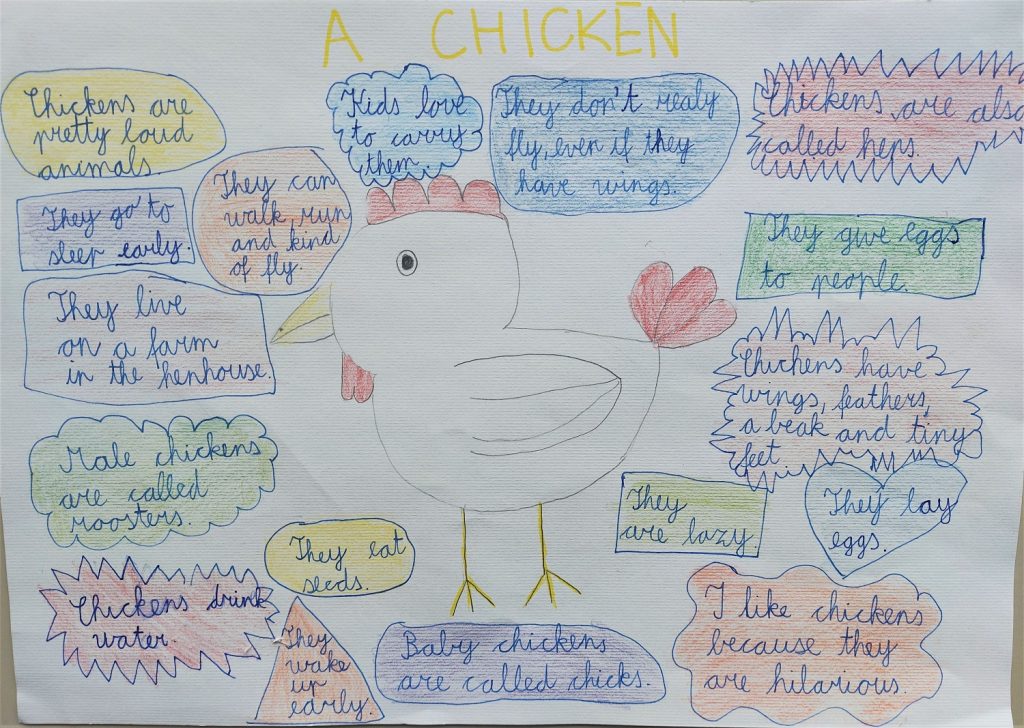 A CHICKEN
Chickens are
pretty loud
animals.
Kids love
to carry
them.
They don't realy
fly, even if they
have wings.
Chickens are also
called hens.
They go to
sleep early.
They can
walk, run
and kind
of fly.
They give eggs
to people.
They live
on a farm
in the henhouse.
Chickens have
wings, feathers,
a beak and tiny
feet
Male chickens
are called
roosters.
They
are lazy.
They lay
eggs.
They eat
seeds.
Chickens drink
water.
They
wake
up
early.
Baby chickens
are called chicks.
I like chickens
because they
are hilarious.